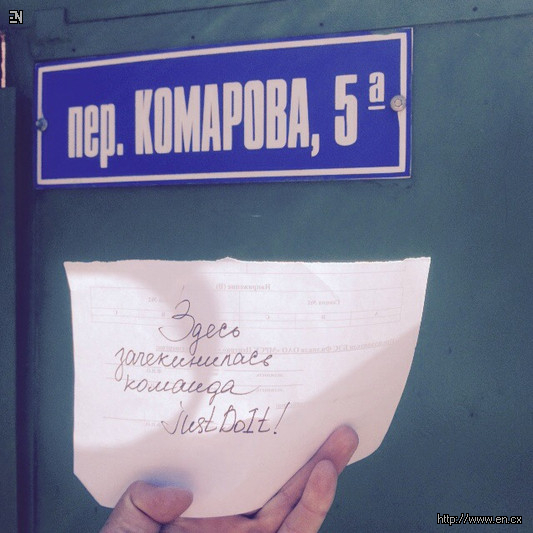 EN
пер. КОМАРОВА, 5а
Здесь
зачекинилась
команда
justDoIt!
http://www.en.cx